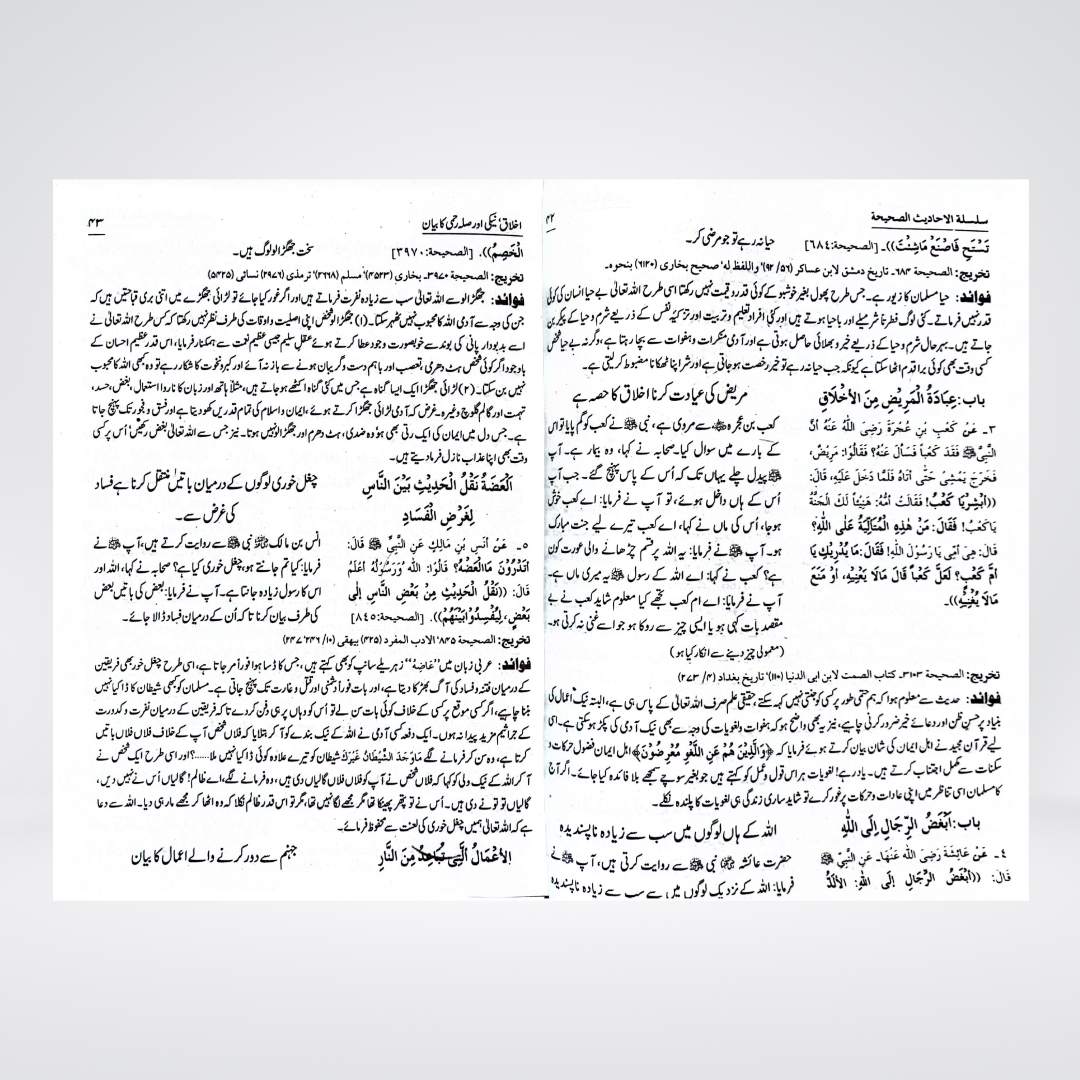 سلسلة الاحاديث الصحيحة ۴۲
تَسْتَحِ فَاصْنَعْ مَاشِئْتَ)). [الصحيحة:٦٨٤]
حیا نہ رہے تو جو مرضی کر۔
تخریج: الصحیحة ۶۸۴۔ تاریخ دمشق لابن عساکر (۵۶/ ۹۲)' واللفظ له' صحیح بخاری (۶۱۲۰) بنحوه۔
فوائد: حیا مسلمان کا زیور ہے۔ جس طرح پھول بغیر خوشبو کے کوئی قدر و قیمت نہیں رکھتا اسی طرح اللہ تعالیٰ بے حیا انسان کی کوئی
قدر نہیں فرماتے۔ کئی لوگ فطرتاً شرمیلے اور باحیا ہوتے ہیں اور کئی افراد تعلیم و تربیت اور تزکیہ نفس کے ذریعے شرم و حیا کے پیکر بن
جاتے ہیں۔ بہرحال شرم و حیا کے ذریعے خیر و بھلائی حاصل ہوتی ہے اور آدمی منکرات و ہفوات سے بچا رہتا ہے، وگرنہ بے حیا شخص
کسی وقت بھی کوئی برا قدم اٹھا سکتا ہے کیونکہ جب حیا نہ رہے تو خیر رخصت ہو جاتی ہے اور شر اپنا ٹھکانا مضبوط کر لیتی ہے۔
باب: عِيَادَةُ الْمَرِيْضِ مِنَ الأَخْلَاقِ
مریض کی عیادت کرنا اخلاق کا حصہ ہے
٣۔ عَنْ كَعْبِ بْنِ عُجْرَةَ رَضِيَ اللَّهُ عَنْهُ أَنَّ
النَّبِيَّ ﷺ فَقَدَ كَعْباً فَسَأَلَ عَنْهُ؟ فَقَالُوْا: مَرِيْضٌ،
فَخَرَجَ يَمْشِيْ حَتَّى أَتَاهُ فَلَمَّا دَخَلَ عَلَيْهِ، قَالَ:
((أَبْشِرْ يَا كَعْبُ! فَقَالَتْ أُمُّهُ: هَنِيْئاً لَكَ الْجَنَّةُ
يَاكَعْبُ! فَقَالَ: مَنْ هٰذِهِ الْمُتَأَلِّيَةُ عَلَى اللهِ؟
قَالَ: هِيَ أُمِّي يَا رَسُوْلَ اللهِ! فَقَالَ: مَا يُدْرِيْكِ يَا
أُمَّ كَعْبٍ؟ لَعَلَّ كَعْباً قَالَ مَالَا يَعْنِيْهِ، أَوْ مَنَعَ
مَالَا يُغْنِيْهِ))۔
کعب بن عجرہؓ سے مروی ہے، نبی ﷺ نے کعب کو گم پایا تو اس
کے بارے میں سوال کیا۔ صحابہ نے کہا، وہ بیمار ہے۔ آپ
ﷺ پیدل چلے یہاں تک کہ اُس کے پاس پہنچ گئے۔ جب آپ
اُس کے ہاں داخل ہوئے، تو آپ نے فرمایا: اے کعب خوش
ہو جا، اُس کی ماں نے کہا، اے کعب تیرے لیے جنت مبارک
ہو۔ آپ ﷺ نے فرمایا: یہ اللہ پر قسم چڑھانے والی عورت کون
ہے؟ کعب نے کہا: اے اللہ کے رسول ﷺ یہ میری ماں ہے۔
آپ نے فرمایا: اے ام کعب تجھے کیا معلوم شاید کعب نے بے
مقصد بات کہی ہو یا ایسی چیز سے روکا ہو جو اسے غنی نہ کرتی ہو۔
(معمولی چیز دینے سے انکار کیا ہو)
تخریج: الصحیحة ۳۱۰۳۔ کتاب الصمت لابن ابی الدنیا (۱۱۰)' تاریخ بغداد (۴/ ۲۷۳)
فوائد: حدیث سے معلوم ہوا کہ ہم حتمی طور پر کسی کو جنتی نہیں کہہ سکتے، حقیقی علم صرف اللہ تعالیٰ کے پاس ہی ہے، البتہ نیک اعمال کی
بنیاد پر حسن ظن اور دعائے خیر ضرور کرنی چاہیے، نیز یہ بھی واضح ہو کہ ہفوات و لغویات کی وجہ سے بھی نیک آدمی کی پکڑ ہو سکتی ہے۔ اسی
لیے قرآن مجید نے اہل ایمان کی شان بیان کرتے ہوئے فرمایا کہ ﴿وَالَّذِيْنَ هُمْ عَنِ اللَّغْوِ مُعْرِضُوْنَ﴾ اہل ایمان فضول حرکات و
سکنات سے مکمل اجتناب کرتے ہیں۔ یاد رہے! لغویات ہر اس قول و عمل کو کہتے ہیں جو بغیر سوچے سمجھے بلا فائدہ کیا جائے۔ اگر آج
کا مسلمان اسی تناظر میں اپنی عادات و حرکات پر غور کرے تو شاید ساری زندگی ہی لغویات کا پلندہ نکلے۔
باب: أَبْغَضُ الرِّجَالِ إِلَى اللهِ
اللہ کے ہاں لوگوں میں سب سے زیادہ ناپسندیدہ
٤۔ عَنْ عَائِشَةَ رَضِيَ الله عَنْهَا۔ عَنِ النَّبِيِّ ﷺ
قَالَ: ((أَبْغَضُ الرِّجَالِ إِلَى اللهِ: الأَلَدُّ
حضرت عائشہؓ نبی ﷺ سے روایت کرتی ہیں، آپ ﷺ نے
فرمایا: اللہ کے نزدیک لوگوں میں سے سب سے زیادہ ناپسندیدہ
اخلاق، نیکی اور صلہ رحمی کا بیان ۴۳
الْخَصِمُ)). [الصحيحة:٣٩٧٠]
سخت جھگڑالو لوگ ہیں۔
تخریج: الصحیحة ۳۹۷۰۔ بخاری (۴۵۲۳)' مسلم (۲۶۶۸)' ترمذی (۲۹۷۶)' نسائی (۵۴۲۵)
فوائد: جھگڑالو سے اللہ تعالیٰ سب سے زیادہ نفرت فرماتے ہیں اور اگر غور کیا جائے تو لڑائی جھگڑے میں اتنی بری قباحتیں ہیں کہ
جن کی وجہ سے آدمی اللہ کا محبوب نہیں ٹھہر سکتا۔ (۱) جھگڑالو شخص اپنی اصلیت و اوقات کی طرف نظر نہیں رکھتا کہ کس طرح اللہ تعالیٰ نے
اسے بدبودار پانی کی بوند سے خوبصورت وجود عطا کرتے ہوئے عقل سلیم جیسی عظیم نعمت سے ہمکنار فرمایا، اس قدر عظیم احسان کے
باوجود اگر کوئی شخص ہٹ دھرمی، تعصب اور باہم دست و گریبان ہونے سے باز نہ آئے اور کبر و نخوت کا شکار رہے تو وہ کبھی اللہ کا محبوب
نہیں بن سکتا۔ (۲) لڑائی جھگڑا ایک ایسا گناہ ہے جس میں کئی گناہ اکٹھے ہو جاتے ہیں، مثلاً ہاتھ اور زبان کا ناروا استعمال، بغض، حسد،
تہمت اور گالم گلوچ وغیرہ۔ غرض کہ آدمی لڑائی جھگڑا کرتے ہوئے، ایمان و اسلام کی تمام قدریں کھو دیتا ہے اور فسق و فجور تک پہنچ جاتا
ہے۔ جس دل میں ایمان کی ایک رتی بھی ہو وہ ضدی، ہٹ دھرم اور جھگڑالو نہیں ہوتا۔ نیز جس سے اللہ تعالیٰ بغض رکھیں اُس پر کسی
وقت بھی اپنا عذاب نازل فرما دیتے ہیں۔
اَلْعَضَةُ نَقْلُ الْحَدِيْثِ بَيْنَ النَّاسِ
لِغَرْضِ الْفَسَادِ
چغل خوری لوگوں کے درمیان باتیں منتقل کرنا ہے فساد
کی غرض سے۔
٥۔ عَنْ أَنَسِ بْنِ مَالِكٍ عَنِ النَّبِيِّ ﷺ قَالَ:
أَتَدْرُوْنَ مَاالْعَضْهُ؟ قَالُوْا: اللهُ وَرَسُوْلُهُ أَعْلَمُ
قَالَ: ((نَقْلُ الْحَدِيْثِ مِنْ بَعْضِ النَّاسِ إِلَى
بَعْضٍ، لِيُفْسِدُوْا بَيْنَهُمْ)). [الصحيحة:٨٤٥]
انس بن مالکؓ نبی ﷺ سے روایت کرتے ہیں، آپ ﷺ نے
فرمایا: کیا تم جانتے ہو، چغل خوری کیا ہے؟ صحابہ نے کہا، اللہ اور
اس کا رسول زیادہ جانتا ہے۔ آپ نے فرمایا: بعض کی باتیں بعض
کی طرف بیان کرنا تاکہ اُن کے درمیان فساد ڈالا جائے۔
تخریج: الصحیحة ۸۴۵' الادب المفرد (۴۲۵)' بیهقی (۱۰/ ۲۴۶' ۲۴۷)
فوائد: عربی زبان میں "عَاضِهٌ" زہریلے سانپ کو بھی کہتے ہیں، جس کا ڈسا ہوا فوراً مر جاتا ہے، اسی طرح چغل خور بھی فریقین
کے درمیان فتنہ و فساد کی آگ بھڑکا دیتا ہے، اور بات فوراً دشمنی اور قتل و غارت تک پہنچ جاتی ہے۔ مسلمان کو کبھی شیطان کا ڈاکیا نہیں
بننا چاہیے، اگر کسی موقع پر کسی کے خلاف کوئی بات سن لے تو اُس کو وہاں پر ہی دفن کر دے تاکہ فریقین کے درمیان نفرت و کدورت
کے جراثیم مزید پیدا نہ ہوں۔ ایک دفعہ کسی آدمی نے اللہ کے نیک بندے کو آ کر بتلایا کہ فلاں شخص آپ کے خلاف فلاں فلاں باتیں
کرتا ہے، وہ سن کر فرمانے لگے مَاوَجَدَ الشَّيْطَانُ غَيْرَكَ شیطان کو تیرے علاوہ کوئی ڈاکیا نہیں ملا.....؟ اور اسی طرح ایک شخص نے
آ کر اللہ کے نیک ولی کو کہا کہ فلاں شخص نے آپ کو فلاں فلاں گالیاں دی ہیں، وہ فرمانے لگے، اے ظالم! گالیاں اُس نے نہیں دیں،
گالیاں تو تو نے دی ہیں۔ اُس نے تو پتھر پھینکا تھا مگر مجھے لگا نہیں تھا، مگر تو اس قدر ظالم نکلا کہ وہ اٹھا کر مجھے مار ہی دیا۔ اللہ سے دعا
ہے کہ اللہ تعالیٰ ہمیں چغل خوری کی لعنت سے محفوظ فرمائے۔
اَلأَعْمَالُ الَّتِيْ تُبَاعِدُ مِنَ النَّارِ
جہنم سے دور کرنے والے اعمال کا بیان